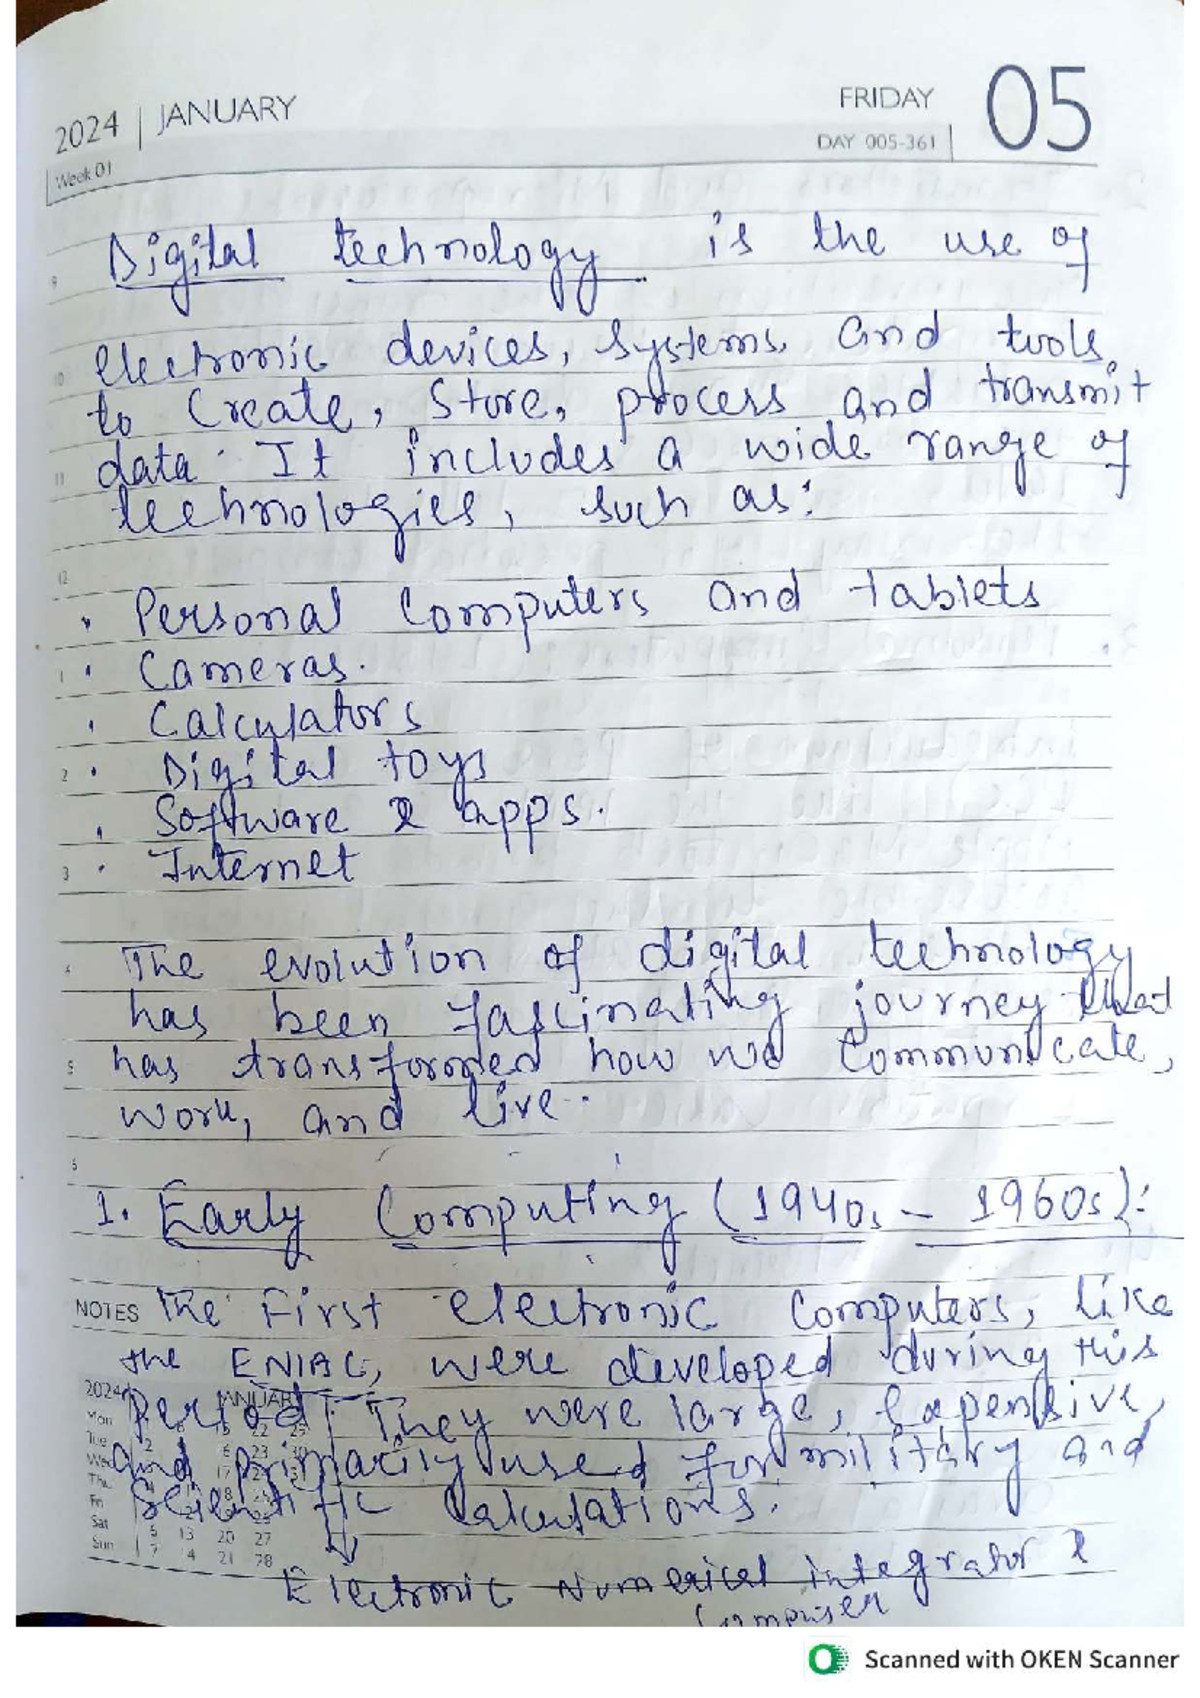 2024 | JANUARY
FRIDAY 05
DAY 005-361
Week 01
Digital technology is the use of
9
electronic devices, systems, and tools
10
to Create, Store, process and transmit
11 data. It includes a wide range of
technologies, such as:
12
• Personal Computers and tablets
1 • Cameras.
• Calculators
2 • Digital toys
• Software & apps.
3 • Internet
4 The evolution of digital technology
has been fascinating journey that
5 has transformed how we Communicate,
work, and live.
6
1. Early Computing (1940s – 1960s):
NOTES The First electronic Computers, like
the ENIAC, were developed during this
Period. They were large, Expensive,
and primarily used for military and
Scientific Calculations.
2024 JANUARY
Mon
Tue
Wed
Thu
Fri
Sat
13 20 27
Sun 7 14 21 28
Electronic Numerical integrator &
Computer
Scanned with OKEN Scanner